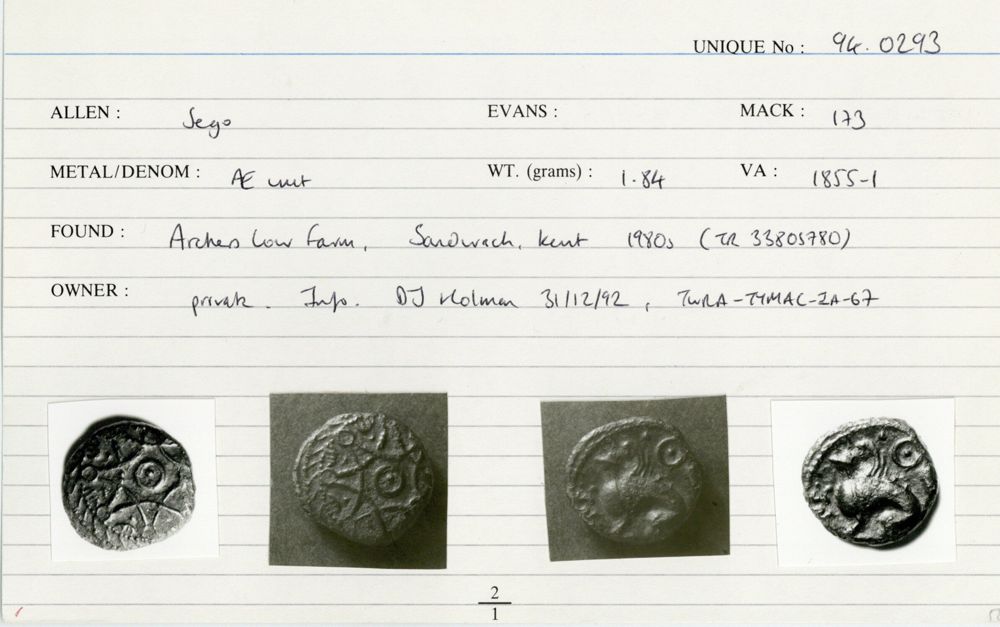 UNIQUE No : 94.0293
ALLEN : Sego EVANS : MACK : 173
METAL/DENOM : Æ unit WT. (grams) : 1.84 VA : 1855-1
FOUND : Archers Low Farm, Sandwich, Kent 1980s (TR 33805780)
OWNER : private. Info. DJ Holman 31/12/92,
2
1